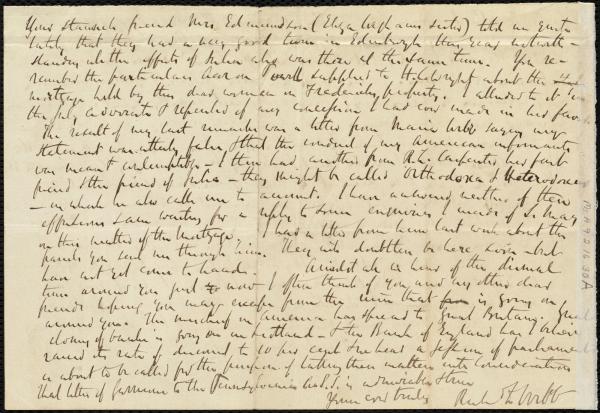 Your staunch friend Mrs. Edmundson (Eliza Wigham's sister) told me quite
lately that they had a very good time in Edinburgh this year notwith-
standing all the efforts of Julia who was there at the same time. You re-
member the particulars Aaron Powell supplied to H C Wright about the
mortgage held by the dear women on Fredericks property. I alluded to it in
the July Advocate & repented of any exception I had ever made in his favor
The result of my last remarks was a letter from Maria Webb saying my
statement was utterly false & that the conduct of my American informants
was mean & contemptible - I then had another from R.L. Carpenter his fast
friend & the friend of Julia - they might be called Orthodoxea & Heterodoxea
- in which he also calls me to account. I have answered neither of these
effusions & am waiting for a reply to some enquiries I made of S. May
on this matter of the mortgage. I had a letter from him last week about the
parcels you sent me through him. They will doubtless be here soon - but
have not yet come to hand. Grievest all we hear of the dismal
times around you just now I often think of you and my other dear
friends hoping you may escape from the ruin that is going on
around you. The mischief in America has spread to Great Britain. Great
closing of banks is going on in Scotland - & the Bank of England has I believe
raised its rate of discount to 10 per cent & we hear a session of parliament
is about to be called for the purpose of taking these matters into consideration
That letter of Garrison to the Pennsylvania A.S.S. is admirable & true
Yours ever truly Richd D. Webb
MS.A.9.2 v.16.30A